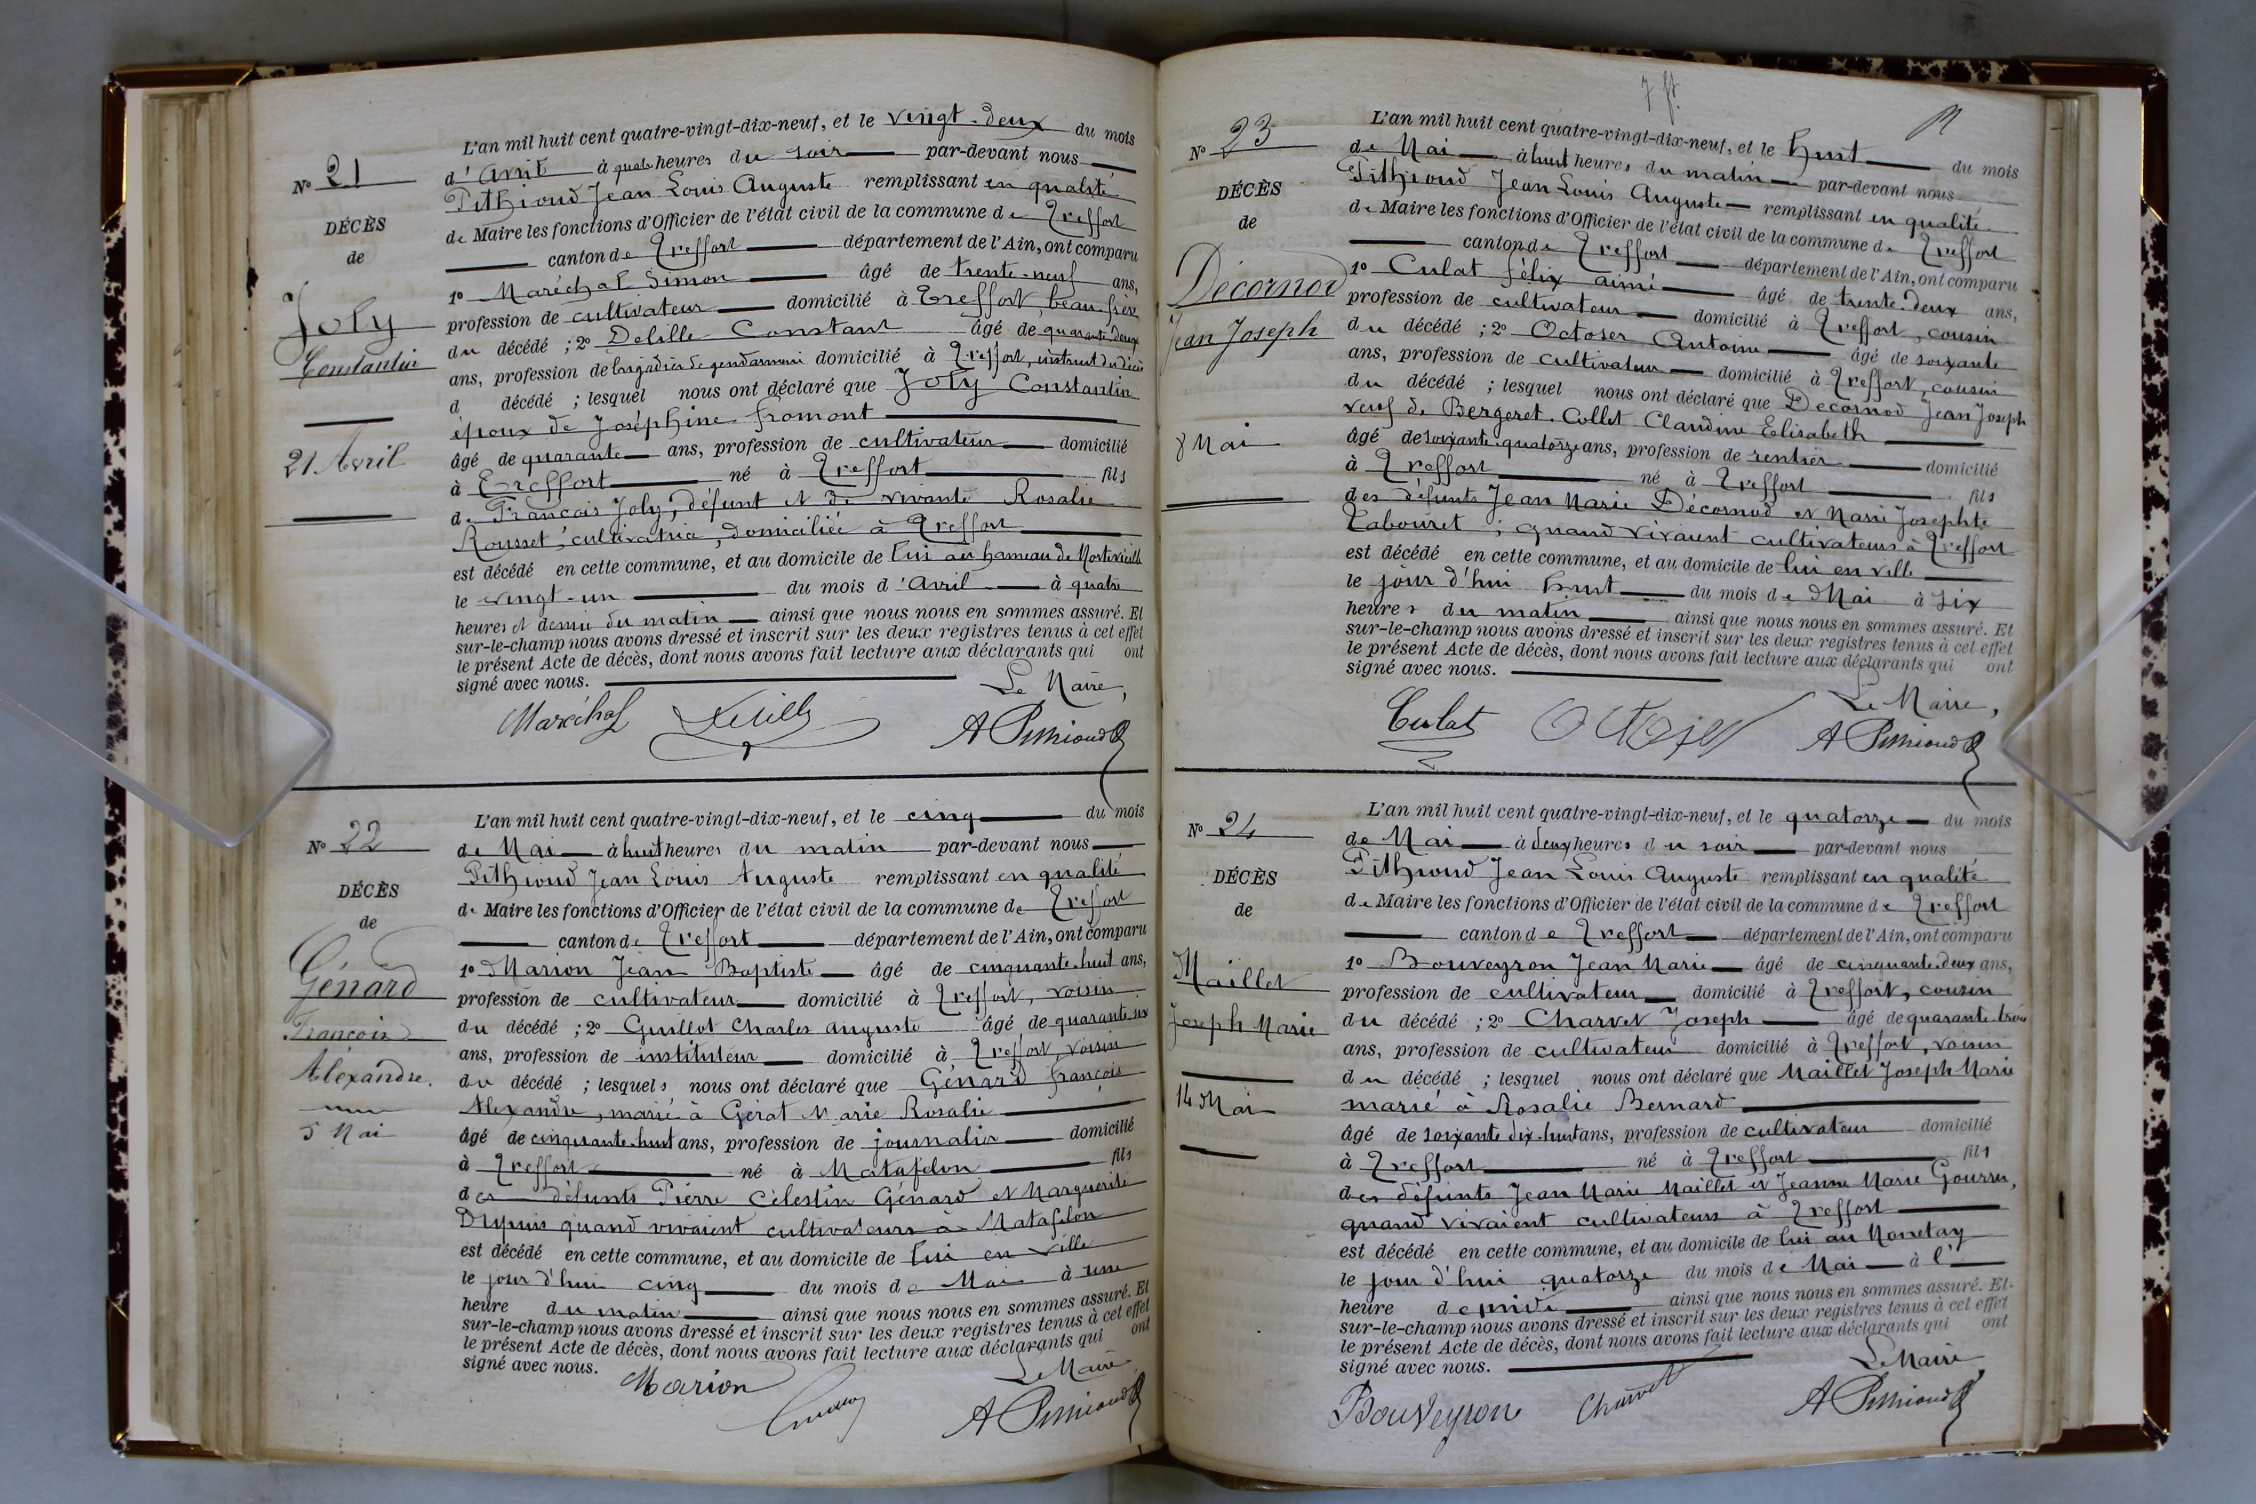 L'an mil huit cent quatre-vingt-dix-neuf, et le vingt-deux du mois
d'avril à quatre heures du soir par-devant nous
Pithioud Jean Louis Auguste remplissant en qualité
de Maire les fonctions d'Officier de l'état civil de la commune de Treffort
canton de Treffort département de l'Ain, ont comparu
1º Maréchal Simon âgé de trente-neuf ans,
profession de cultivateur domicilié à Treffort, beau-frère
du décédé ; 2º Delille Constant âgé de quarante-deux
ans, profession de brigadier de gendarmerie domicilié à Treffort, instruit du décès
d décédé ; lesquel nous ont déclaré que Joly Constantin
époux de Joséphine Fromont
âgé de quarante ans, profession de cultivateur domicilié
à Treffort né à Treffort fils
de François Joly, défunt et de vivante Rosalie
Rousset, cultivatrice, domiciliée à Treffort
est décédé en cette commune, et au domicile de lui au hameau de Montevieille
le vingt-un du mois d'avril à quatre
heures et demie du matin ainsi que nous nous en sommes assuré. Et
sur-le-champ nous avons dressé et inscrit sur les deux registres tenus à cet effet
le présent Acte de décès, dont nous avons fait lecture aux déclarants qui ont
signé avec nous. Le Maire,
Maréchal Delille A Pithioud
Nº 21
DÉCÈS
de
Joly
Constantin
21 Avril
Nº 22
DÉCÈS
de
Génard
François
Alexandre.
5 Mai
L'an mil huit cent quatre-vingt-dix-neuf, et le cinq du mois
de Mai à huit heures du matin par-devant nous
Pithioud Jean Louis Auguste remplissant en qualité
de Maire les fonctions d'Officier de l'état civil de la commune de Treffort
canton de Treffort département de l'Ain, ont comparu
1º Marion Jean Baptiste âgé de cinquante-huit ans,
profession de cultivateur domicilié à Treffort, voisin
du décédé ; 2º Guillot Charles Auguste âgé de quarante-six
ans, profession de instituteur domicilié à Treffort, voisin
du décédé ; lesquels nous ont déclaré que Génard François
Alexandre, marié à Gérat Marie Rosalie
âgé de cinquante-huit ans, profession de journalier domicilié
à Treffort né à Matafelon fils
des défunts Pierre Célestin Génard et Marguerite
Dupuis quand vivaient cultivateurs à Matafelon
est décédé en cette commune, et au domicile de lui en ville
le jour d'hui cinq du mois de Mai à une
heure du matin ainsi que nous nous en sommes assuré. Et
sur-le-champ nous avons dressé et inscrit sur les deux registres tenus à cet effet
le présent Acte de décès, dont nous avons fait lecture aux déclarants qui ont
signé avec nous. Le Maire
Marion A Pithioud
7 ft.
Nº 23
DÉCÈS
de
Décornod
Jean Joseph
8 Mai
L'an mil huit cent quatre-vingt-dix-neuf, et le huit du mois
de Mai à huit heures du matin par-devant nous
Pithioud Jean Louis Auguste remplissant en qualité
de Maire les fonctions d'Officier de l'état civil de la commune de Treffort
canton de Treffort département de l'Ain, ont comparu
1º Culat félix aimé âgé de trente-deux ans,
profession de cultivateur domicilié à Treffort, cousin
du décédé ; 2º Octoser Antoine âgé de soixante
ans, profession de cultivateur domicilié à Treffort, cousin
du décédé ; lesquel nous ont déclaré que Décornod Jean Joseph
veuf de Bergeret-Collet Claudine Elisabeth
âgé de soixante-quatorze ans, profession de rentier domicilié
à Treffort né à Treffort fils
des défunts Jean Marie Décornod et Marie Josephte
Tabouret ; quand vivaient cultivateurs à Treffort
est décédé en cette commune, et au domicile de lui en ville
le jour d'hui huit du mois de Mai à six
heures du matin ainsi que nous nous en sommes assuré. Et
sur-le-champ nous avons dressé et inscrit sur les deux registres tenus à cet effet
le présent Acte de décès, dont nous avons fait lecture aux déclarants qui ont
signé avec nous. Le Maire,
Culat Octoser A Pithioud
Nº 24
DÉCÈS
de
Maillet
Joseph Marie
14 Mai
L'an mil huit cent quatre-vingt-dix-neuf, et le quatorze du mois
de Mai à deux heures du soir par-devant nous
Pithioud Jean Louis Auguste remplissant en qualité
de Maire les fonctions d'Officier de l'état civil de la commune de Treffort
canton de Treffort département de l'Ain, ont comparu
1º Bouveyron Jean Marie âgé de cinquante-deux ans,
profession de cultivateur domicilié à Treffort, cousin
du décédé ; 2º Charvet Joseph âgé de quarante-trois
ans, profession de cultivateur domicilié à Treffort, voisin
du décédé ; lesquel nous ont déclaré que Maillet Joseph Marie
marié à Rosalie Bernard
âgé de soixante-dix-huit ans, profession de cultivateur domicilié
à Treffort né à Treffort fils
des défunts Jean Marie Maillet et Jeanne Marie Gourres,
quand vivaient cultivateurs à Treffort
est décédé en cette commune, et au domicile de lui au Monetay
le jour d'hui quatorze du mois de Mai à l'
heure de midi ainsi que nous nous en sommes assuré. Et
sur-le-champ nous avons dressé et inscrit sur les deux registres tenus à cet effet
le présent Acte de décès, dont nous avons fait lecture aux déclarants qui ont
signé avec nous. Le Maire
Bouveyron Charvet A Pithioud